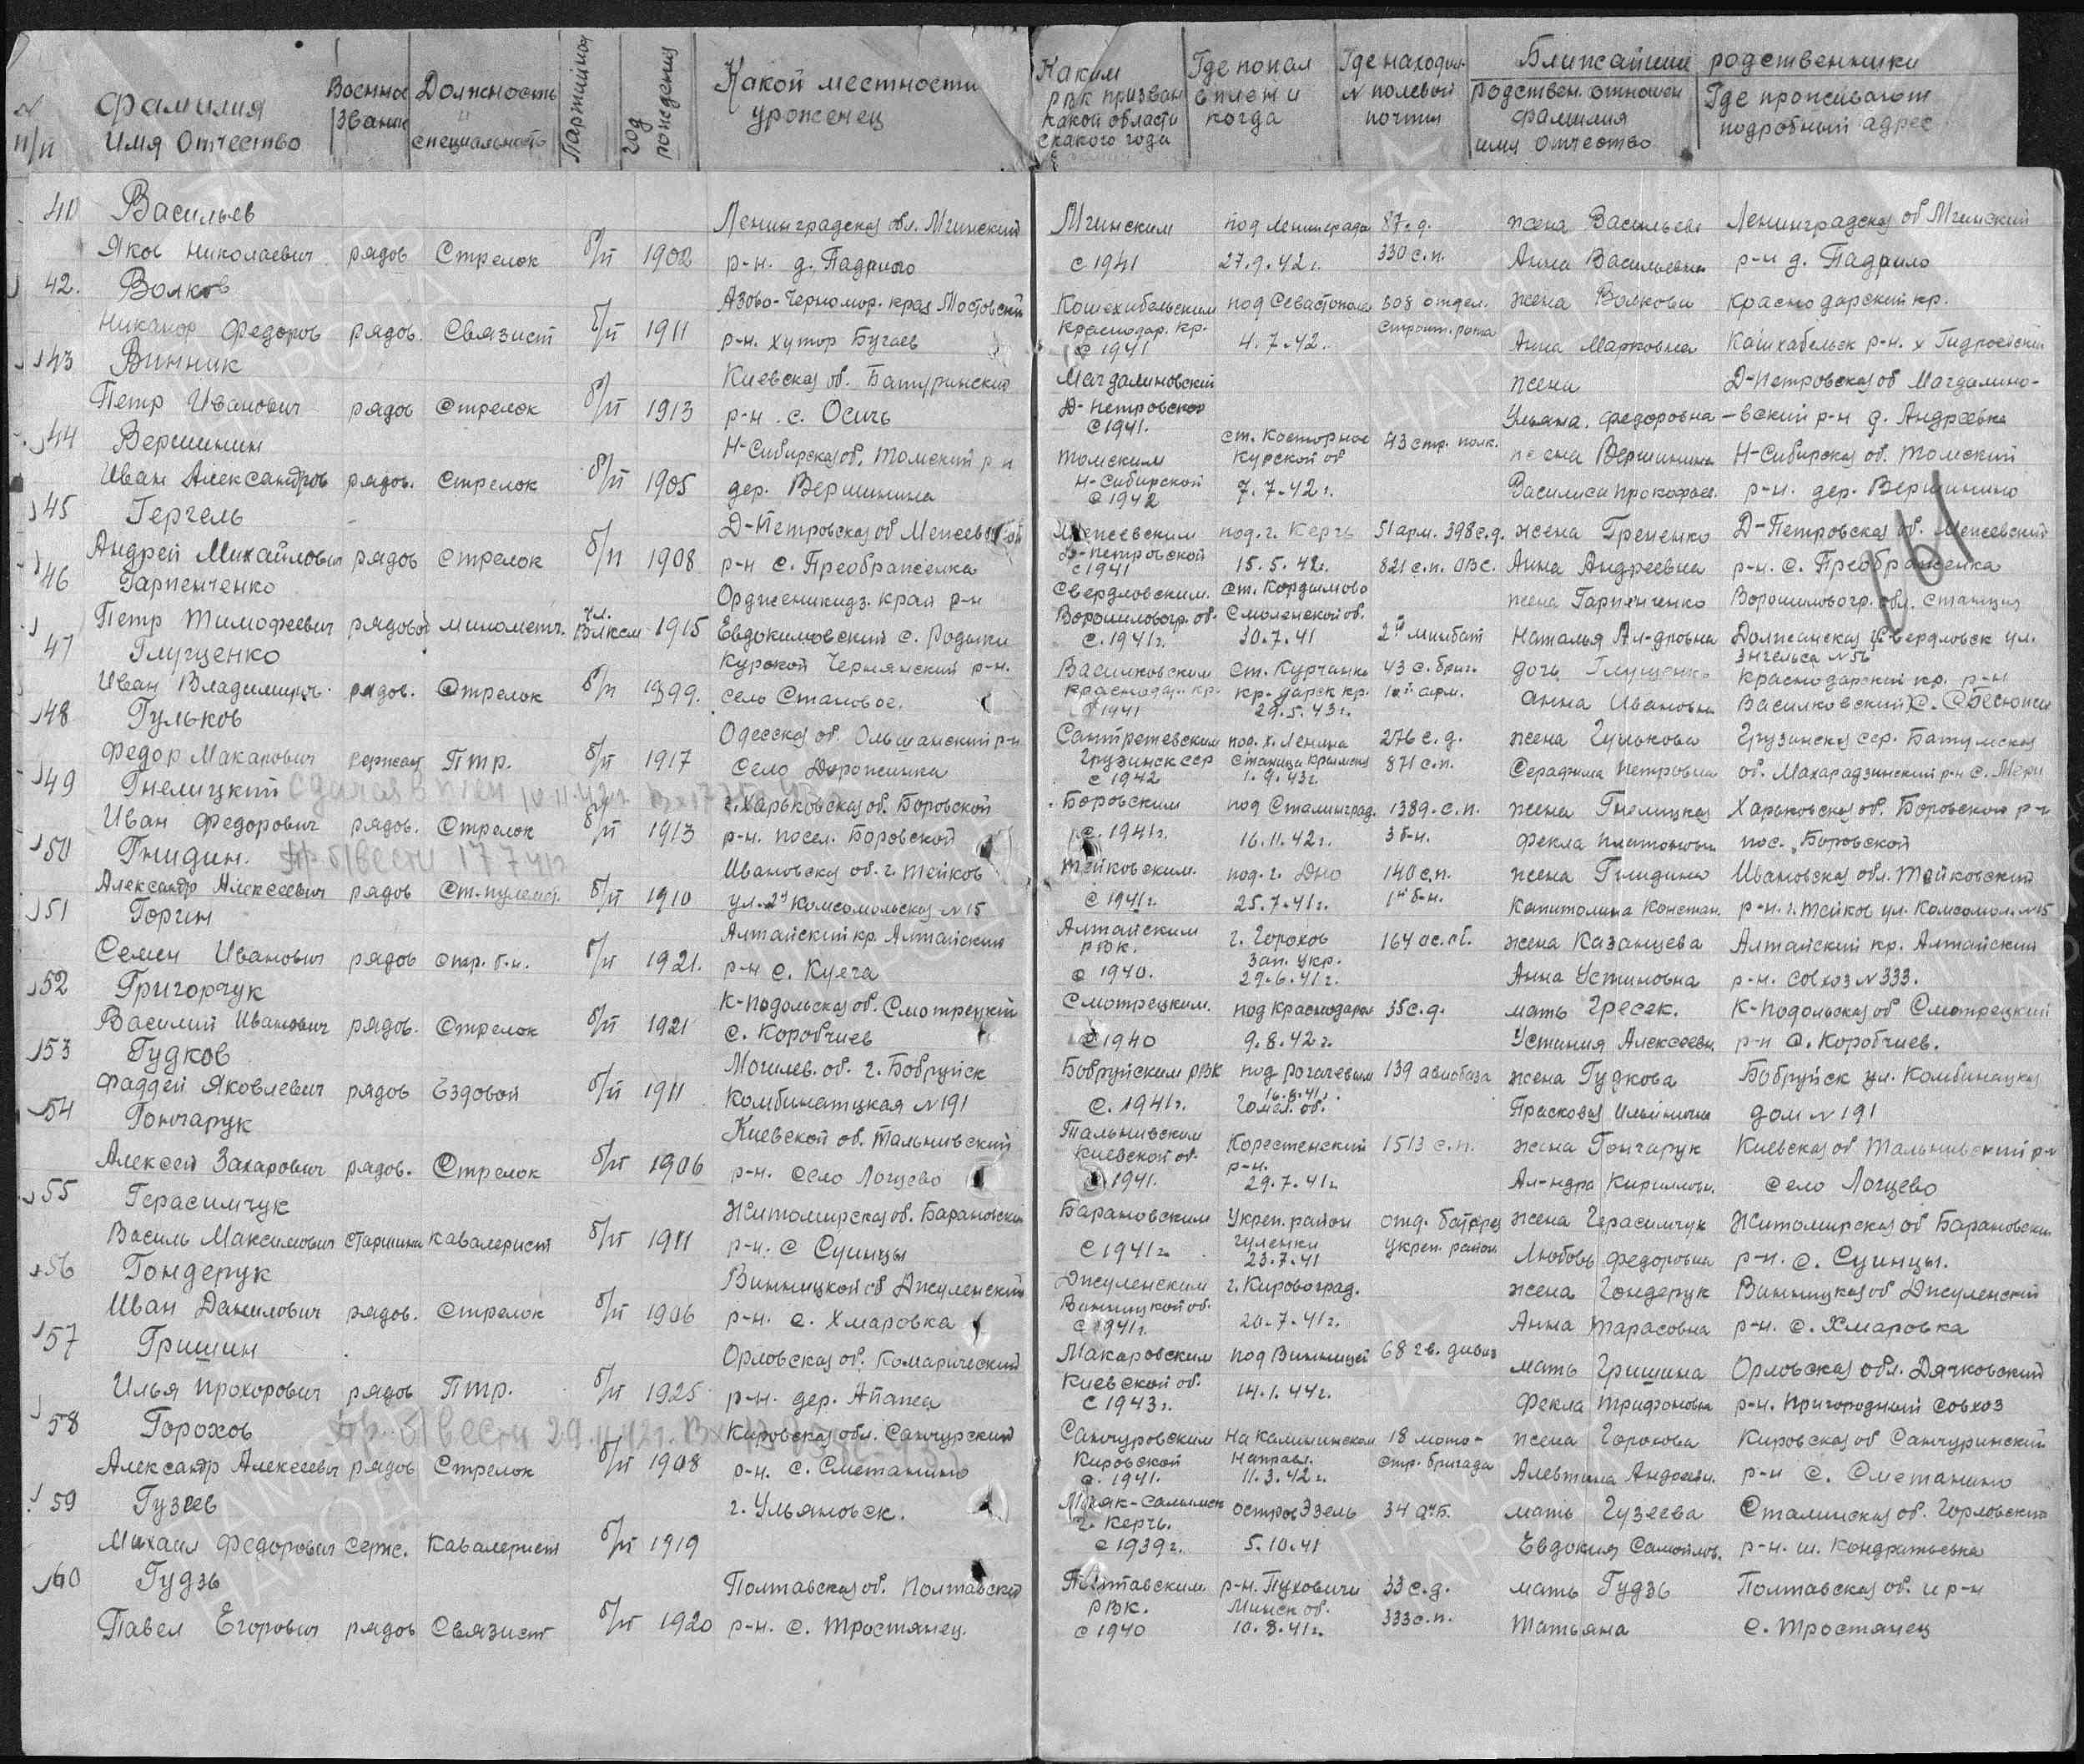 № п/п
Фамилия Имя Отчество
Военное звание
Должность и специальность
Партийная
год рождения
Какой местности уроженец
Каким РВК призван какой области с какого года
Где попал в плен и когда
Где находил. № полевой почты
Ближайшие родственники
Родствен. отношен фамилия имя отчество
Где проживают подробный адрес
161
41 Васильев Ленинградская обл. Мгинский Мгинским под Ленинградом 87 с.д. жена Васильева Ленинградская об Мгинский
Яков Николаевич рядов Стрелок б/п 1902 р-н. д. Падрило с 1941 27.9.42 г. 330 с.п. Анна Васильевна р-н д. Падрило
42. Волков Азово-Черномор. края Мостовский Кошехабельским под Севастополем отдел. жена Волкова Краснодарский кр.
Никанор Федоров рядов. Связист б/п 1911 р-н. хутор Бугаев Краснодар. кр. с 1941 4.7.42. строит. рота Анна Марковна Кашхабельск р-н. х
43 Винник Киевская об. Батуринский Магдалиновский жена Д-Петровская об Магдалино-
Петр Иванович рядов Стрелок б/п 1913 р-н. с. Осичь Д-Петровской с 1941. Ульяна Федоровна -вский р-н д. Андреевка
44 Вершинин Н-Сибирская об. Томский р-н Томским ст. Косторное Курской об 43 стр. полк. жена Вершинина Н-Сибирская об. Томский
Иван Александров рядов. Стрелок б/п 1905 дер. Вершинина Н-Сибирской с 1942 7.7.42 г. Василиса Прокофьев. р-н. дер. Вершинино
45 Гергель Д-Петровская об Межевский Межевским под. г. Керчь 51 арм. 398 с.д. жена Гременко Д-Петровская об. Межевский
Андрей Михайлович рядов Стрелок б/п 1908 р-н с. Преображенка Д-Петровской с 1941 15.5.42 г. 821 с.п. ОВС. Анна Андреевна р-н. с. Преображенка
46 Гарпенченко Орджоникидз. край р-н Свердловским. ст. Кордымово жена Гарпенченко Ворошиловогр. обл. станция
Петр Тимофеевич рядовой минометч. чл. ВЛКСМ 1915 Евдокимовский с. Родыки Ворошиловогр. об. с. 1941 г. Смоленской об. 30.7.41 2й минбат Наталья Ал-дровна Должанская г. Свердловск ул. Энгельса № 56
47 Глущенко Курской Чернянский р-н. Васильковским ст. Курчанка 43 с. бриг. дочь Глущенко Краснодарский кр. р-н
Иван Владимиров. рядов. Стрелок б/п 1899. село Становое. Краснодар. кр. с 1941 кр-дарск кр. 29.5.43 г. арм. Анна Ивановна Васильковский с.
48 Гульков Одесская об. Ольшанский р-н Самтредевским под. х. Ленина 276 с.д. жена Гулькова Грузинская сср. Батумская
Федор Макарович сержант Птр. б/п 1917 село Дорожинка Грузинск сср с 1942 станица Крымская 1.9.43 г. 871 с.п. Серафима Петровна об. Махарадзинский р-н с. Мери
49 Гнелицкий Сдался в плен Харьковская об. Боровской Боровским под Сталинград. 1389. с.п. жена Гнелицкая Харьковская об. Боровской р-н
Иван Федорович рядов. Стрелок б/п 1913 р-н. посел. Боровской с. 1941 г. 16.11.42 г. 3 б-н. Фекла Платоновна пос. Боровской
50 Гнидин. Пр. б/вести Ивановская об. г. Тейков Тейковским. под. г. Дно 140 с.п. жена Гнидина Ивановская обл. Тейковский
Александр Алексеевич рядов Ст. пулемет. б/п 1910 ул. 2я Комсомольская № 15 с 1941 г. 25.7.41 г. 1й б-н. Капитолина Констан. р-н. г. Тейков ул. Комсомол. № 15
51 Горин Алтайский кр. Алтайский Алтайским РВК. г. Горохов 164 жена Казанцева Алтайский кр. Алтайский
Семен Иванович рядов стр. б.н. б/п 1921. р-н с. Куеча с 1940. Зап. Укр. 29.6.41 г. Анна Устиновна р-н. совхоз № 333.
52 Григорчук К-Подольская об. Смотрецкий Смотрецким. под Краснодаром 35 с.д. мать Гресек. К-Подольская об Смотрецкий
Василий Иванович рядов. Стрелок б/п 1921 с. Коробчиев с 1940 9.8.42 г. Устиния Алексеевн. р-н с. Коробчиев.
53 Гудков Могилев. об. г. Бобруйск Бобруйским РВК под Рогачевым 139 авиобаза жена Гудкова Бобруйск ул. Комбинацкая
Фаддей Яковлевич рядов Ездовой б/п 1911 Комбинатцкая № 191 с. 1941 г. 16.8.41 г. Гомел. об. Прасковья Ильинична дом № 191
54 Гончарук Киевской об. Тальнивский Тальнивским Корестенский 1513 с.п. жена Гончарук Киевская об Тальнивский р-н
Алексей Захарович рядов. Стрелок б/п 1906 р-н. село Лощево Киевской об. с 1941. р-н. 29.7.41 г. Ал-ндра Кирилловн. село Лощево
55 Герасимчук Житомирская об. Барановский Барановским Укреп. район отд. жена Герасимчук Житомирская об Барановский
Василь Максимович старшина кавалерист б/п 1911 р-н. с Суинцы с 1941 г. Гуленки 23.7.41 укреп. район Любовь Федоровна р-н. с. Суинцы.
56 Гондерук Винницкой об Джуленский Джуленским г. Кировоград. жена Гондерук Винницкая об Джуленский
Иван Данилович рядов. Стрелок б/п 1906 р-н. с. Хмаровка Винницкой об. с 1941 г. 20.7.41 г. Анна Тарасовна р-н. с. Хмаровка
57 Гришин Орловская об. Комарический Макаровским под Винницей 68 гв. дивиз мать Гришина Орловская обл. Дячковский
Илья Прохорович рядов Птр. б/п 1925 р-н. дер. Апажа Киевской об. с 1943 г. 14.1.44 г. Фекла Трифоновна р-н. Пригородный совхоз
58 Горохов Пр. б/вести Кировская обл. Санчурский Санчуровским на Калининском 18 мото- жена Горохова Кировская об Санчуринский
Александр Алексеевич рядов Стрелок б/п 1908 р-н. с. Сметанино Кировской с. 1941. направл. 11.3.42 г. стр. бригада Алевтина Андреевн. р-н с. Сметанино
59 Гузеев г. Ульяновск. Маяк-Салынск остров Эзель 34 мать Гузеева Сталинская об. Горловский
Михаил Федорович серж. Кавалерист б/п 1919 г. Керчь. с 1939 г. 5.10.41 Евдокия Самойлов. р-н. ш. Кондратьевка
60 Гудзь Полтавская об. Полтавский Полтавским р-н. Пуховичи 33 с.д. мать Гудзь Полтавская об. и р-н
Павел Егорович рядов Связист б/п 1920 р-н. с. Тростянец. РВК. с 1940 Минск об. 10.8.41 г. 333 с.п. Татьяна с. Тростянец